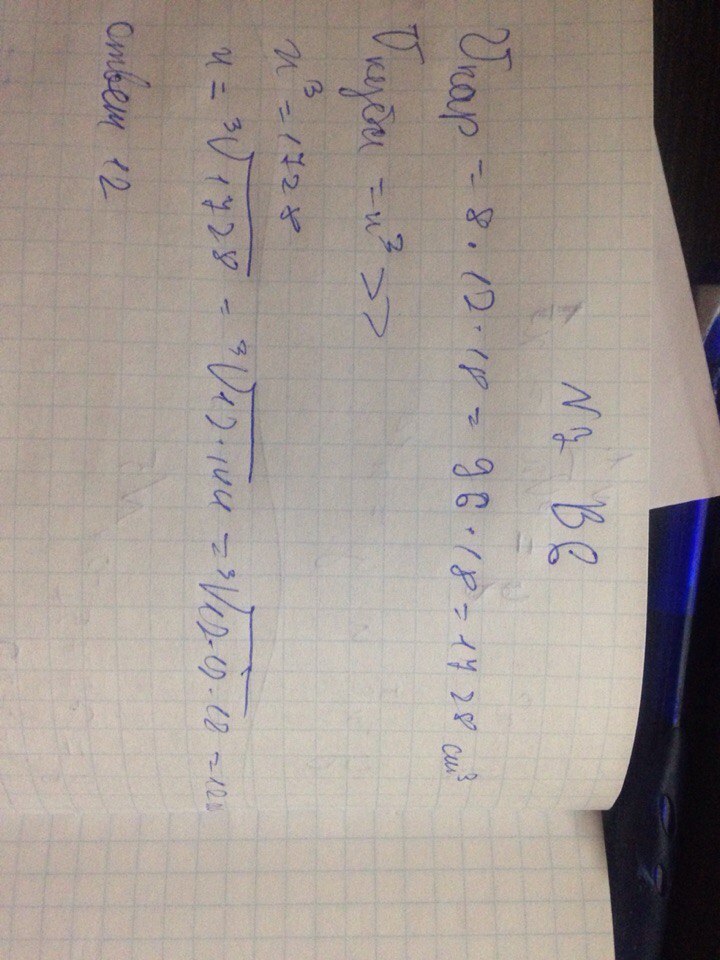 N 7 В6
Vпар = 8 · 12 · 18 = 96 · 18 = 1728 см³
Vкуба = н³ >>
н³ = 1728
н = ³√1728 = ³√12·144 = ³√12·12·12 = 12
ответ 12